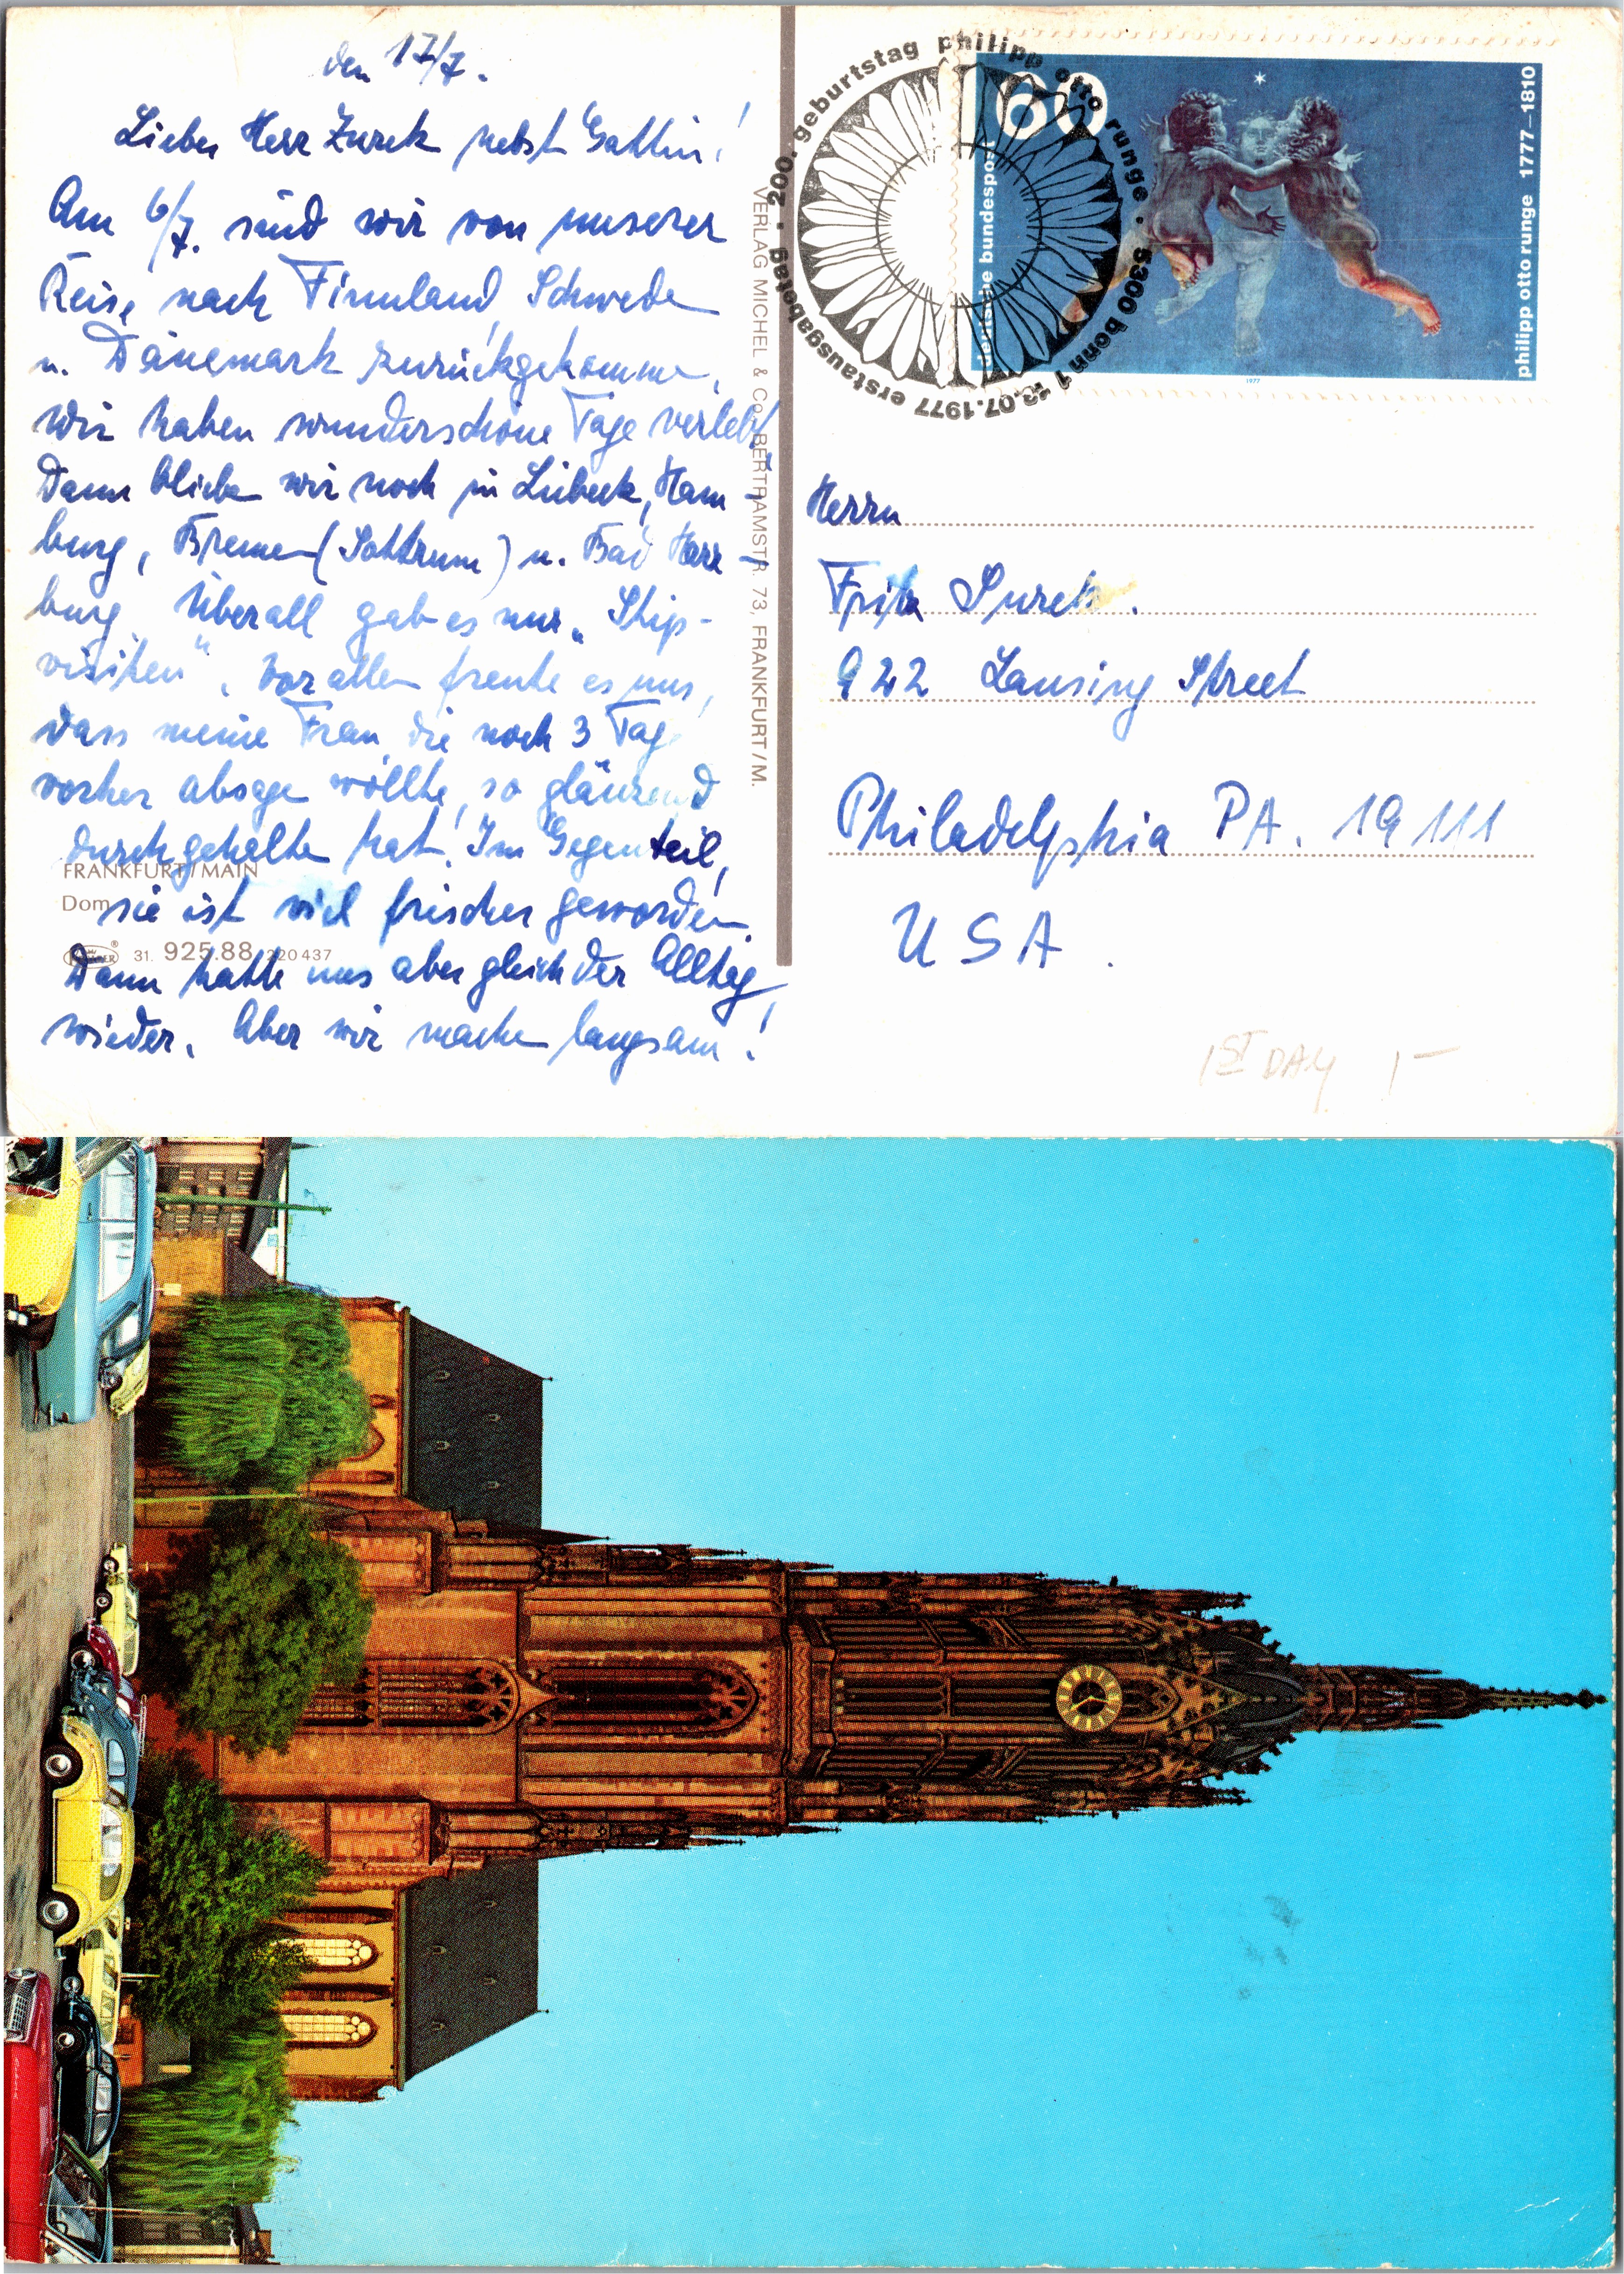 den 17/7.
Lieber Herr Zurek nebst Gattin!
Am 6/7. sind wir von unserer
Reise nach Finnland, Schweden
u. Dänemark zurückgekommen,
wir haben wunderschöne Tage verlebt!
Dann blieben wir noch in Lübeck, Ham-
burg, Bremen (Sottrum) u. Bad Harz-
burg. Überall gab es nur „Stip-
visiten". Vor allem freute es uns,
dass meine Frau, die noch 3 Tage
vorher absagen wollte, so glänzend
durchgehalten hat! Im Gegenteil,
sie ist viel frischer geworden.
Dann hatte uns aber gleich der Alltag
wieder. Aber wir machen langsam!
FRANKFURT/MAIN
Dom
31. 925.88 220 437
VERLAG MICHEL & Co., BERTRAMSTR. 73, FRANKFURT/M.
200. geburtstag philipp otto runge · 5300 bonn 1 13.07.1977 erstausgabetag ·
60
deutsche bundespost
philipp otto runge 1777–1810
1977
Herrn
Fritz Surek.
922 Lansing Street
Philadelphia PA. 19111
USA.
1ST DAY 1–